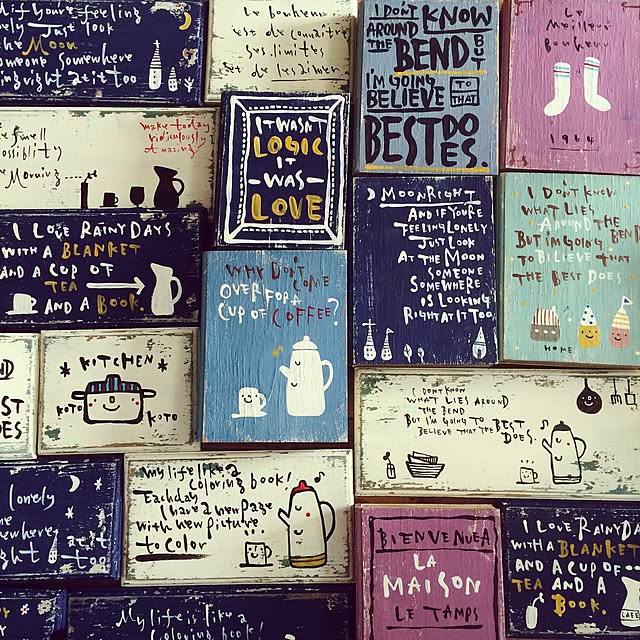 if you're feeling
Just look
the Moon
someone somewhere
right at it too
Le bonheur
est de connaître
ses limites
et de les aimer
I DON'T KNOW
AROUND
THE BEND BUT
I'M GOING
BELIEVE TO THAT
BEST DOES.
Le
Meilleur
Bonheur
1964
make today
ridiculously
Amazing
Morning.....
IT WASN'T
LOGIC
IT
WAS
LOVE
MOONRIGHT
AND IF YOU'RE
FEELING LONELY
JUST LOOK
AT THE MOON
SOMEONE
SOMEWHERE
IS LOOKING
RIGHT AT IT TOO
I DON'T KNOW
WHAT LIES
AROUND THE BEND
BUT I'M GOING
TO BILIEVE THAT
THE BEST DOES
HOME
I LOVE RAINY DAYS
WITH A BLANKET
AND A CUP OF
TEA
AND A BOOK.
WHY DON'T COME
OVER FOR A
CUP OF COFFEE?
KITCHEN
KOTO
KOTO
I DON'T KNOW
WHAT LIES AROUND
THE BEND
BUT I'M GOING TO
BELIEVE THAT THE BEST
DOES.
lonely
somewhere
it
too
My life like a
coloring book!
Each day
I have a new page
with new picture
to color
BIENVENUE A
LA
MAISON
LE TEMPS
I LOVE RAINY DA
WITH A BLANKET
AND A CUP OF
TEA AND A
BOOK.
CAFE
My life is like a
coloring book!